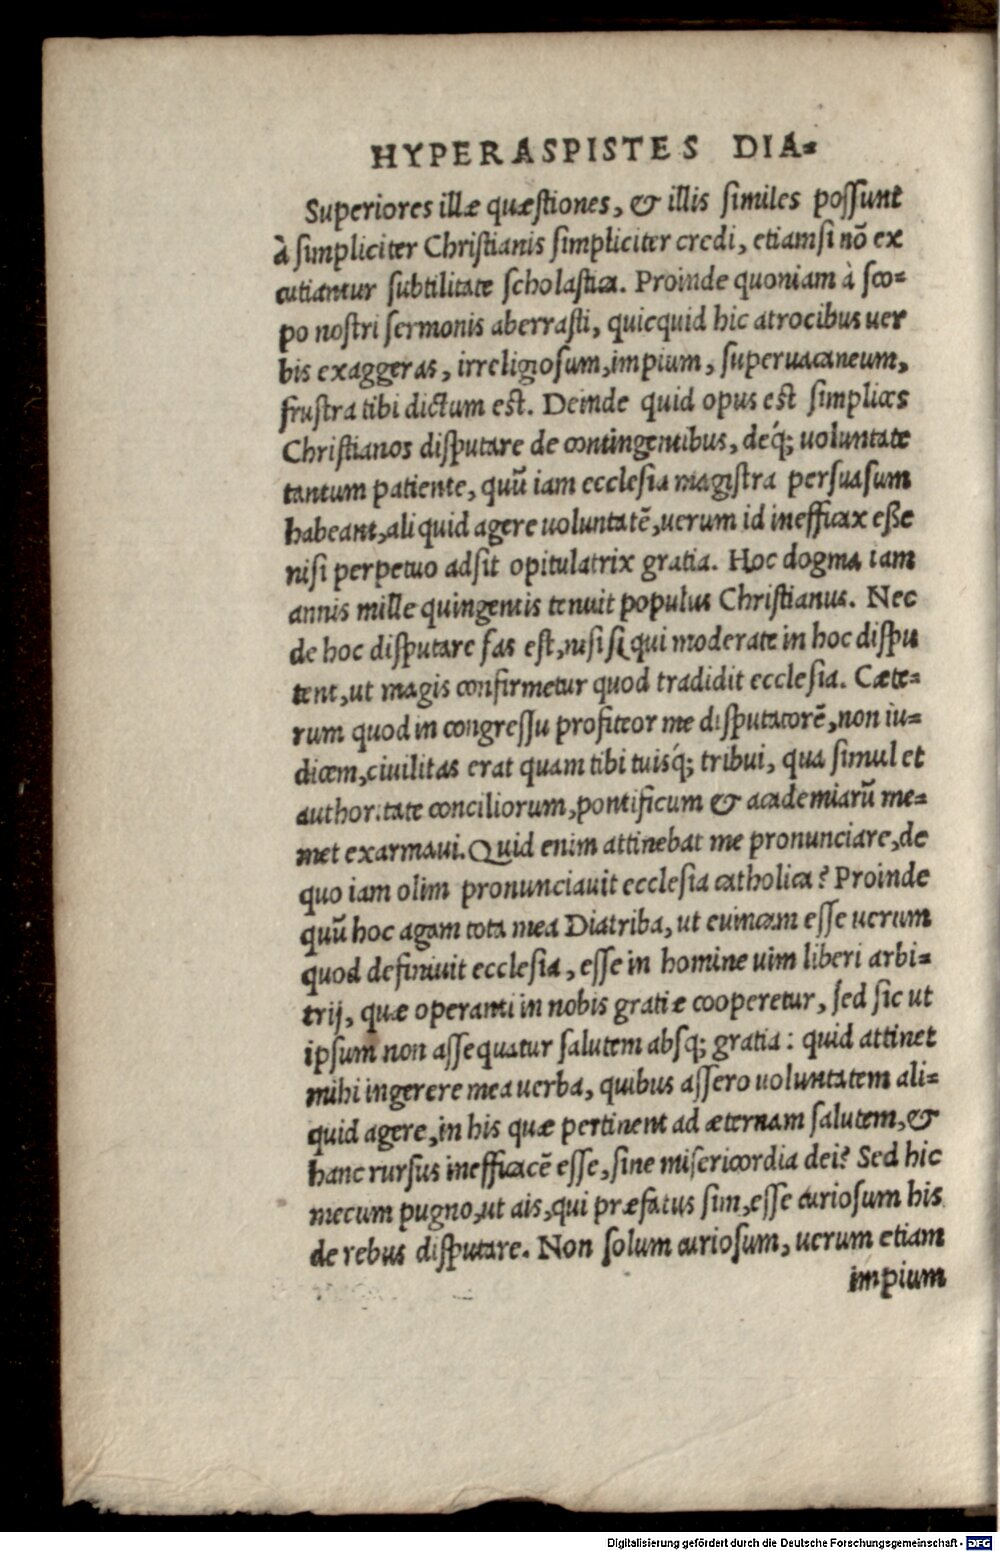 HYPERASPISTES DIA-
Superiores illæ quæstiones, & illis similes possunt
à simpliciter Christianis simpliciter credi, etiamsi nõ ex
cutiantur subtilitate scholastica. Proinde quoniam à sco-
po nostri sermonis aberrasti, quicquid hic atrocibus uer
bis exaggeras, irreligiosum, impium, superuacaneum,
frustra tibi dictum est. Deinde quid opus est simplices
Christianos disputare de contingentibus, deq́; uoluntate
tantum patiente, quũ iam ecclesia magistra persuasum
habeant, aliquid agere uoluntatẽ, uerum id inefficax eße
nisi perpetuo adsit opitulatrix gratia. Hoc dogma iam
annis mille quingentis tenuit populus Christianus. Nec
de hoc disputare fas est, nisi si qui moderate in hoc dispu
tent, ut magis confirmetur quod tradidit ecclesia. Cæte-
rum quod in congressu profiteor me disputatorẽ, non iu-
dicem, ciuilitas erat quam tibi tuisq́; tribui, qua simul et
authoritate conciliorum, pontificum & academiarũ me-
met exarmaui. Quid enim attinebat me pronunciare, de
quo iam olim pronunciauit ecclesia catholica? Proinde
quũ hoc agam tota mea Diatriba, ut euincam esse uerum
quod definiuit ecclesia, esse in homine uim liberi arbi-
trij, quæ operanti in nobis gratiæ cooperetur, sed sic ut
ipsum non assequatur salutem absq; gratia: quid attinet
mihi ingerere mea uerba, quibus assero uoluntatem ali-
quid agere, in his quæ pertinent ad æternam salutem, &
hanc rursus inefficacẽ esse, sine misericordia dei? Sed hic
mecum pugno, ut ais, qui præfatus sim, esse curiosum his
de rebus disputare. Non solum curiosum, uerum etiam
impium
Digitalisierung gefördert durch die Deutsche Forschungsgemeinschaft - DFG